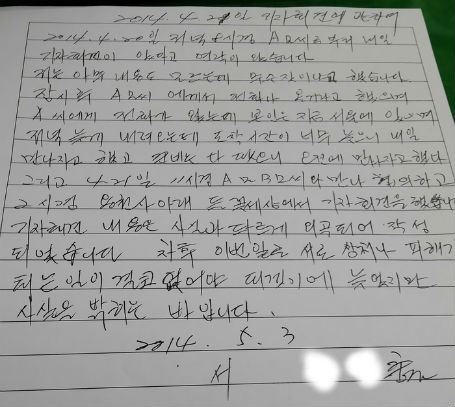 2014.4.21일 기자회견에 관하여
2014.4.20일 저녁 8시경 A모씨로부터 내일
기자회견이 있다고 연락이 왔습니다
저는 아무 내용도 모르는데 무슨 일이냐고 했습니다.
잠시후 A모씨 에게서 전화가 온다고 했으며
A씨에게 전화가 왔는데 본인은 지금 서울에 있으며
저녁 늦게 내려오는데 도착시간이 너무 늦으니 내일
만나자고 했고 준비는 다 됐으니 오전에 만나자고 했다
그리고 4.21일 11시경 A모B모씨와 만나 협의하고
2시경 용천사 아래 들꽃세상에서 기자회견을 했습니다
기자회견 내용은 사실과 다르게 왜곡되어 작성
되었습니다 차후 이번일로 서로 상처나 피해가
되는 일이 결코 없어야 되겠기에 늦었지만
사실을 밝히는 바입니다.
2014. 5. 3
서